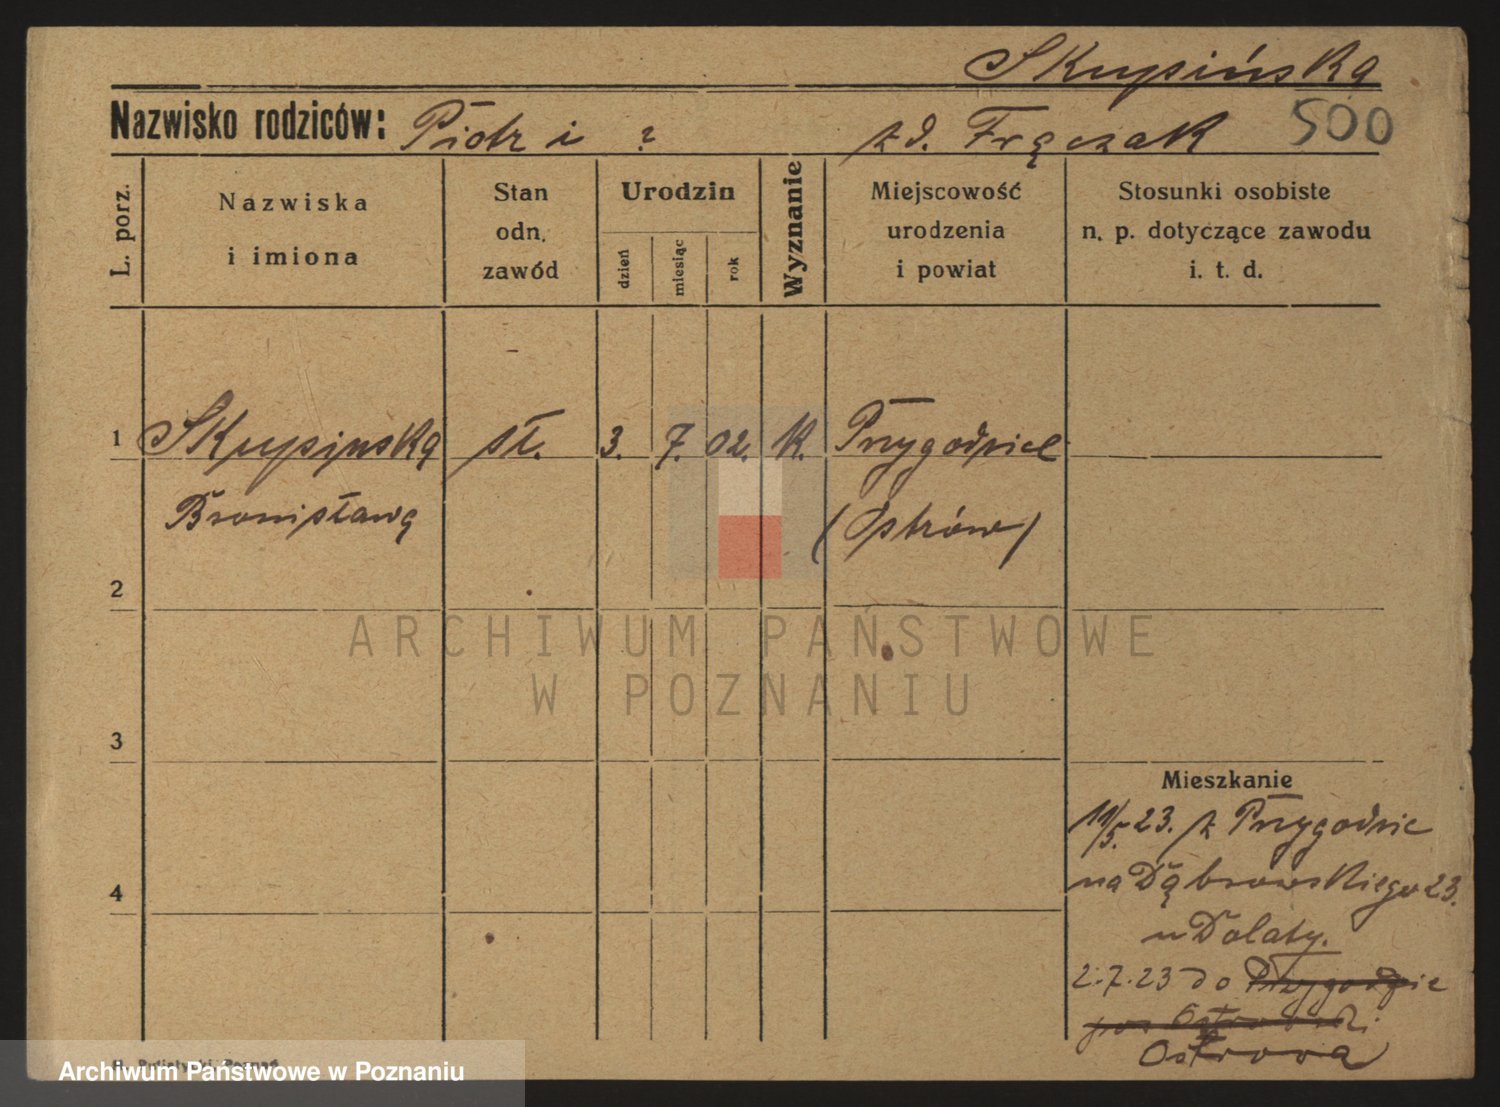 Skupińska
Nazwisko rodziców: Piotr i ? zd. Frączak 500
L. porz.
Nazwiska
i imiona
Stan
odn.
zawód
Urodzin
dzień
miesiąc
rok
Wyznanie
Miejscowość
urodzenia
i powiat
Stosunki osobiste
n. p. dotyczące zawodu
i. t. d.
1 Skupińska sł. 3. 7. 02. K. Przygodzice
Bronisława (Ostrów)
2
ARCHIWUM PAŃSTWOWE
W POZNANIU
3
Mieszkanie
11/5. 23. z Przygodzic
na Dąbrowskiego 23.
4
u Dolaty.
2.7.23 do Przygodzic
pow Ostrowski
Ostrowa
Poznań
Archiwum Państwowe w Poznaniu